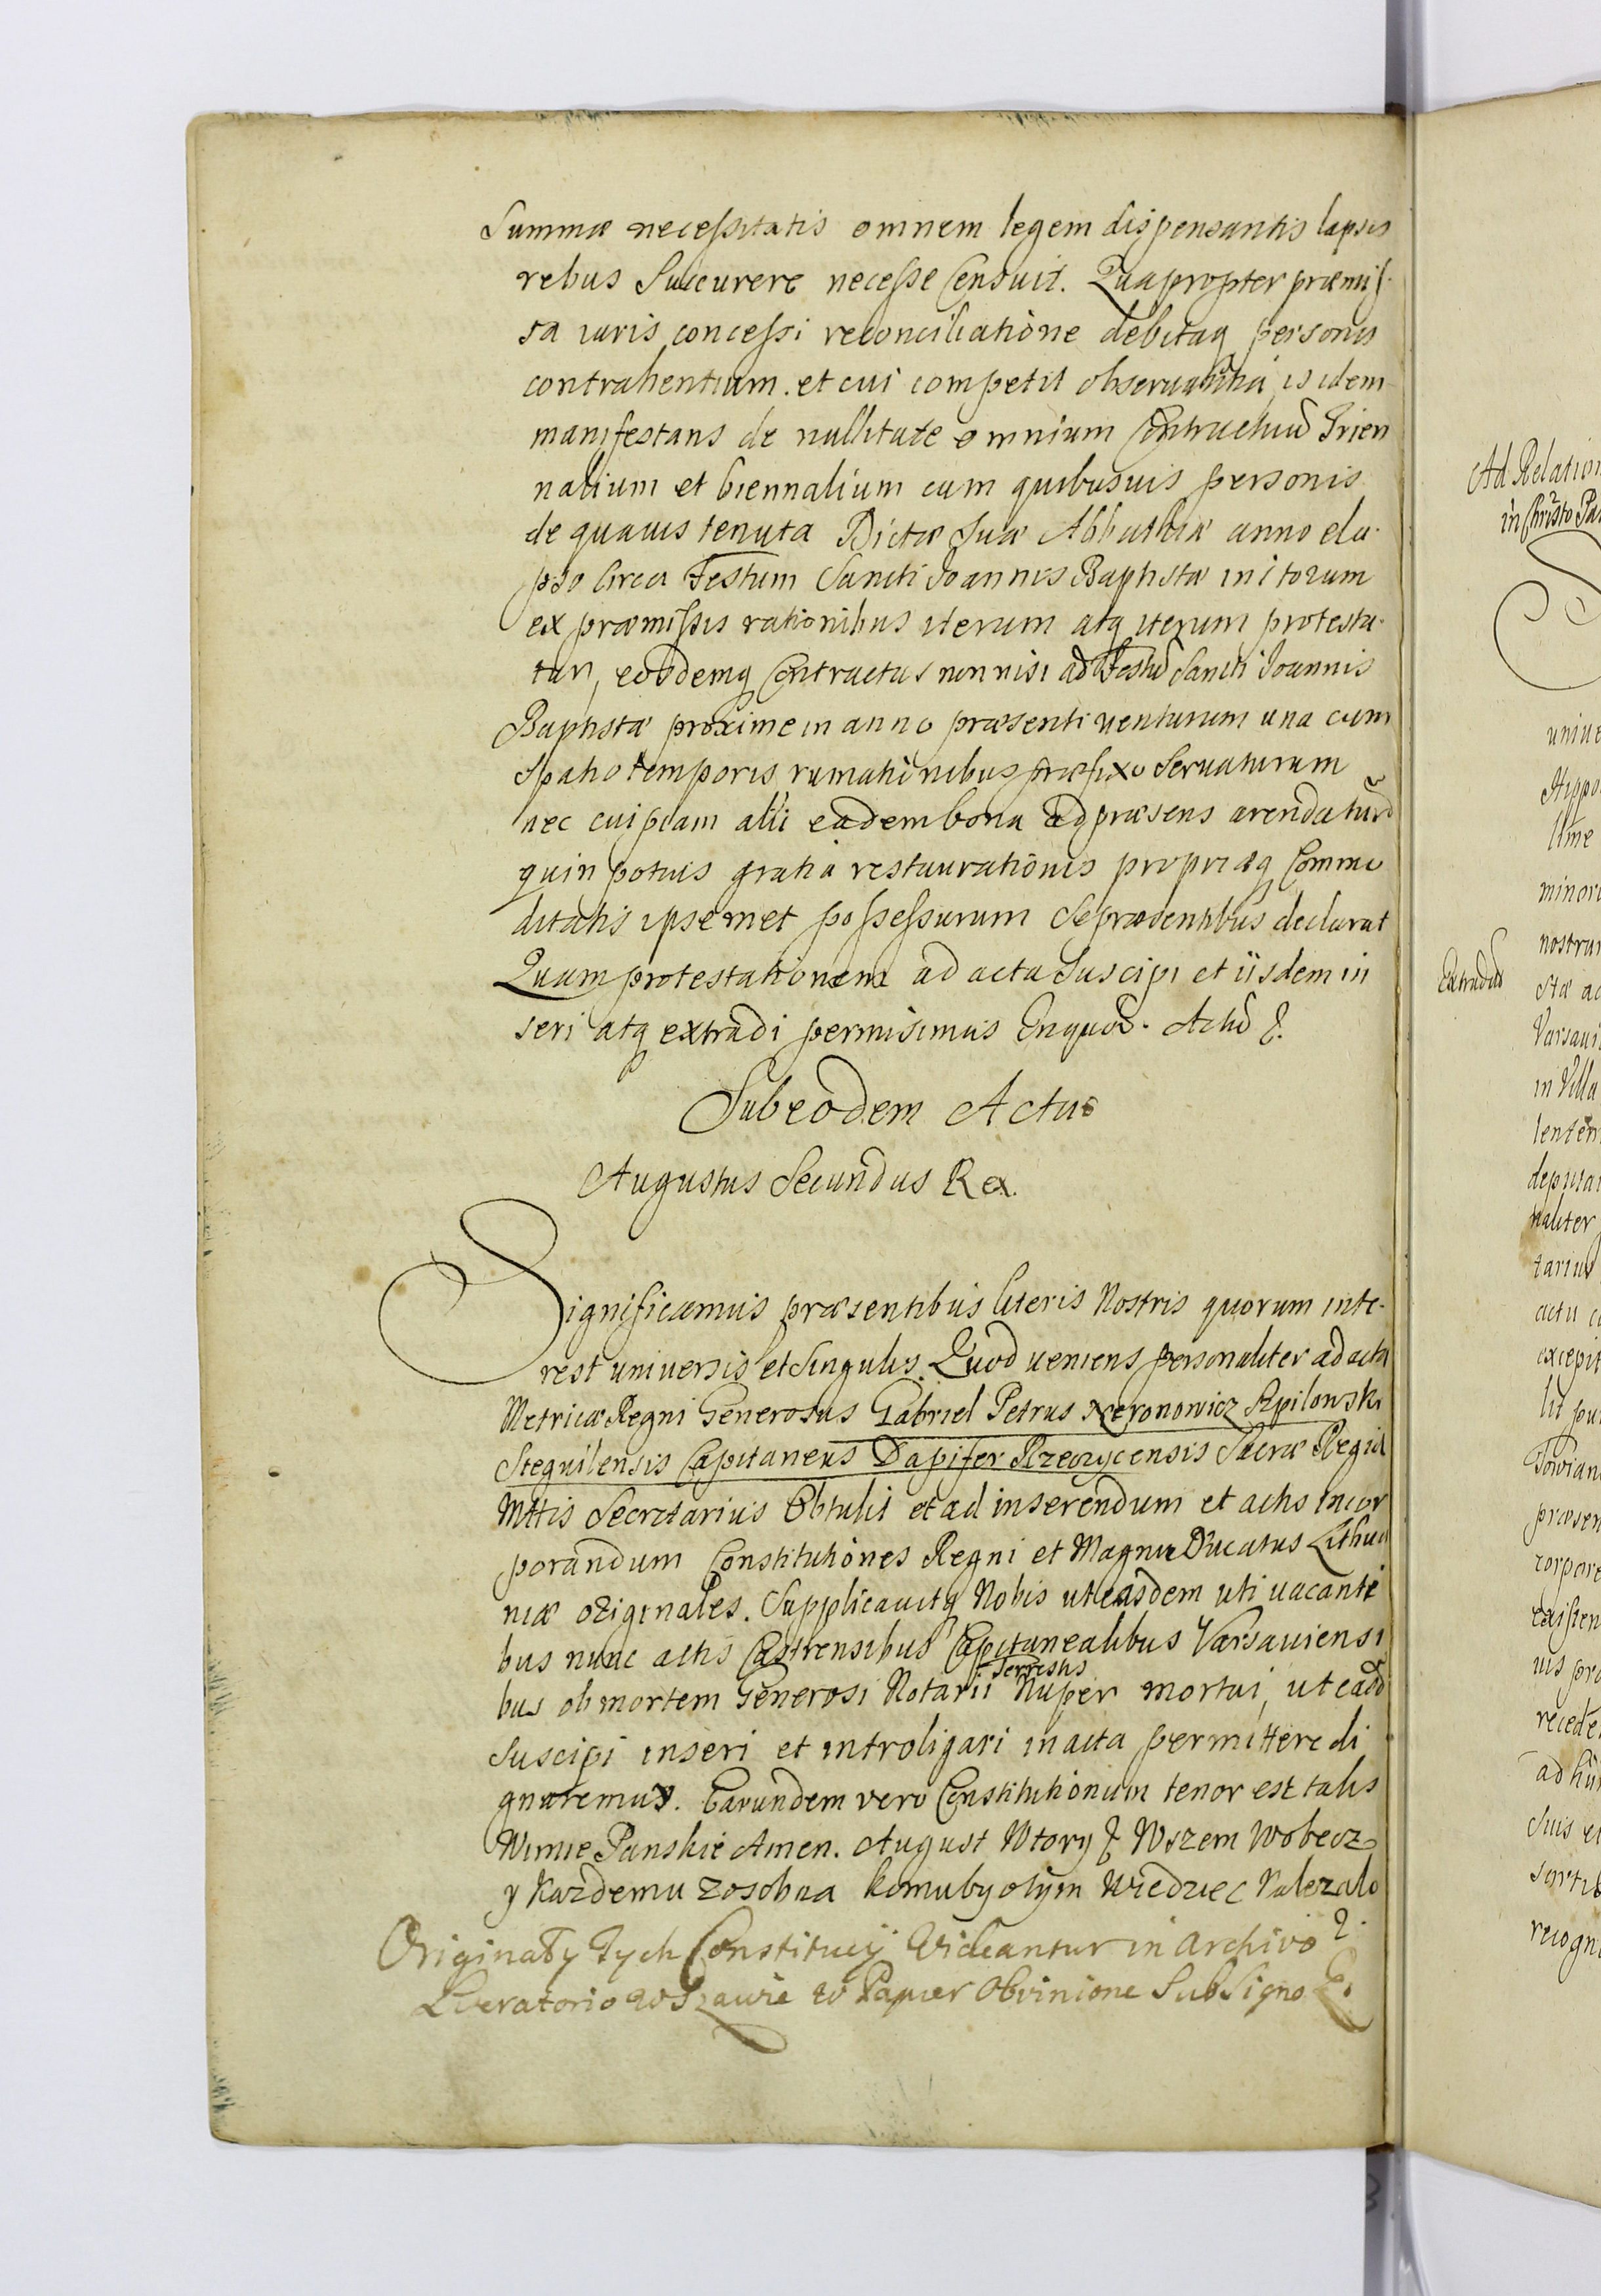 Summæ necessitatis omnem legem dispensantis lapsis
rebus Succurere necesse Censuit. Quapropter præmis-
sa iuris concessi reconciliatione debitaq personis
contrahentium. et cui competit obseruantia is idem
manifestans de nullitate omnium Contractuũ Trien
nalium et biennalium cum quibusuis personis
de quauis tenuta Dictæ Suæ Abbathiæ anno ela-
pso circa Festum Sancti Joannis Baptistæ initorum
ex præmissis rationibus iterum atq iterum protesta-
tur, eosdemq Contractus non nisi ad Festũ Sancti Joannis
Baptistæ proxime in anno præsenti uenturum una cum
Spatio temporis rumationibus præfixo Seruaturum
nec cuipiam alii eadem bona ad præsens arendaturũ
quin potius gratia restaurationis propriæq Commo
ditatis ipsemet possessurum Se præsentibus declarat
Quam protestationem ad acta Suscipi et iisdem in
seri atq extradi permisimus Actũ &.
Sub eodem Actu
Augustus Secundus Rex.
Significamus præsentibus literis Nostris quorum inte-
rest uniuersis et Singulis. Quod ueniens personaliter ad acta
Metricæ Regni Generosus Gabriel Petrus Neronowicz Szpilowski
Stegvilensis Capitaneus Dapifer Rzeczycensis Sacræ Regiæ
Mttis Secretarius Obtulit et ad inserendum et actis incor
porandum Constitutiones Regni et Magni Ducatus Lithua
niæ originales. Supplicauitq Nobis ut easdem uti uacanti
bus nunc actis Castrensibus Capitanealibus Varsauiensi
Terrestris
bus ob mortem Generosi Notarii Nuper mortui, ut easd
Suscipi inseri et introligari in acta permittere di
gnaremur. Earundem vero Constitutionum tenor est talis
W imie Panskie Amen. August Wtory & Wszem Wobecz
y Każdemu zosobna komuby o tym Wiedziec Należało &
Originały Tych Constitucÿ Videantur in Archivo
Literatorio w Papier Obvinione Sub Signo E.
Ad Relation
in Christo Pa
uniue
Hippo
lime
minori
nostrar
Extradit
Stæ ac
Varsaui
in Villa
lentem
deputa
naliter
tarius
actu
excepit
lit
præsen
corpore
existen
uis pro
recede
ad
suis et
recogni